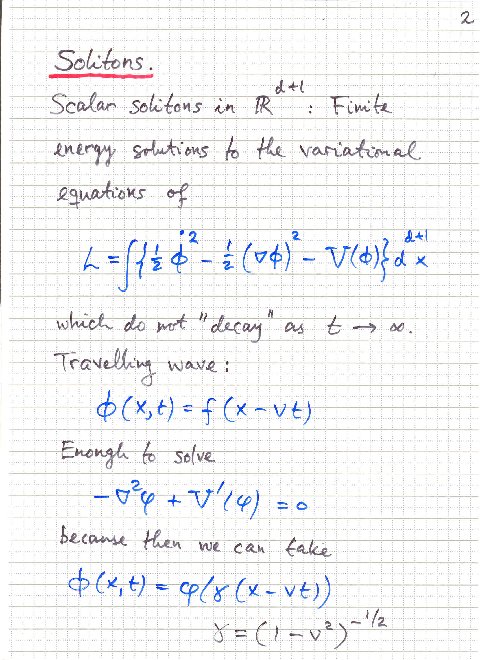 2
Solitons.
Scalar solitons in ℝ^{d+1} : Finite
energy solutions to the variational
equations of
L = ∫{½ φ̇² − ½ (∇φ)² − V(φ)} d^{d+1}x
which do not "decay" as t → ∞.
Travelling wave:
ϕ(x,t) = f(x − vt)
Enough to solve
−∇²φ + V'(φ) = 0
because then we can take
ϕ(x,t) = φ(γ(x − vt))
γ = (1 − v²)^{−1/2}